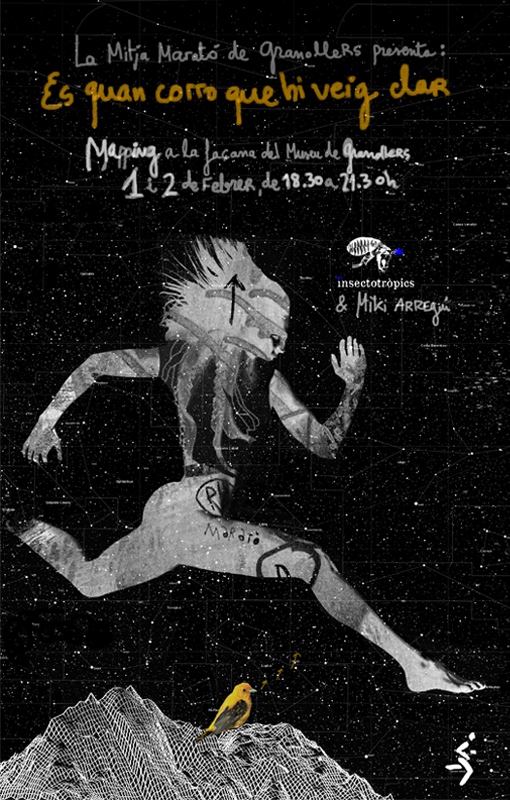 La Mitja Marató de Granollers presenta:
És quan corro que hi veig clar
Mapping a la façana del Museu de Granollers
1 i 2 de Febrer, de 18.30 a 21.30h
insectotròpics
& Miki ARREGUI
Marató